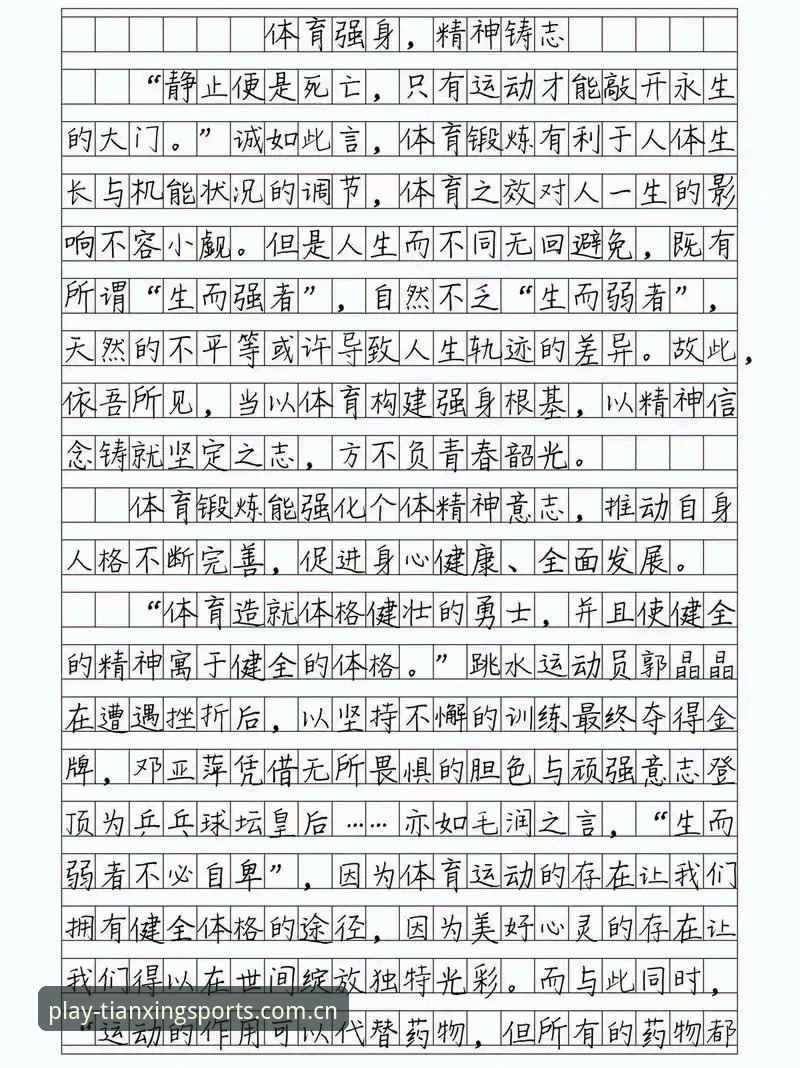 体育强身，精神铸志
“静止便是死亡，只有运动才能敲开永生
的大门。”诚如此言，体育锻炼有利于人体生
长与机能状况的调节，体育之效对人一生的影
响不容小觑。但是人生而不同无回避免，既有
所谓“生而强者”，自然不乏“生而弱者”，
天然的不平等或许导致人生轨迹的差异。故此，
依吾所见，当以体育构建强身根基，以精神信
念铸就坚定之志，方不负青春韶光。
体育锻炼能强化个体精神意志，推动自身
人格不断完善，促进身心健康、全面发展。
“体育造就体格健壮的勇士，并且使健全
的精神寓于健全的体格。”跳水运动员郭晶晶
在遭遇挫折后，以坚持不懈的训练最终夺得金
牌，邓亚萍凭借无所畏惧的胆色与顽强意志登
顶为乒乓球坛皇后……亦如毛润之言，“生而
弱者不必自卑”，因为体育运动的存在让我们
拥有健全体格的途径，因为美好心灵的存在让
我们得以在世间绽放独特光彩。而与此同时，
play-tianxingsports.com.cn
“运动的作用可以代替药物，但所有的药物都